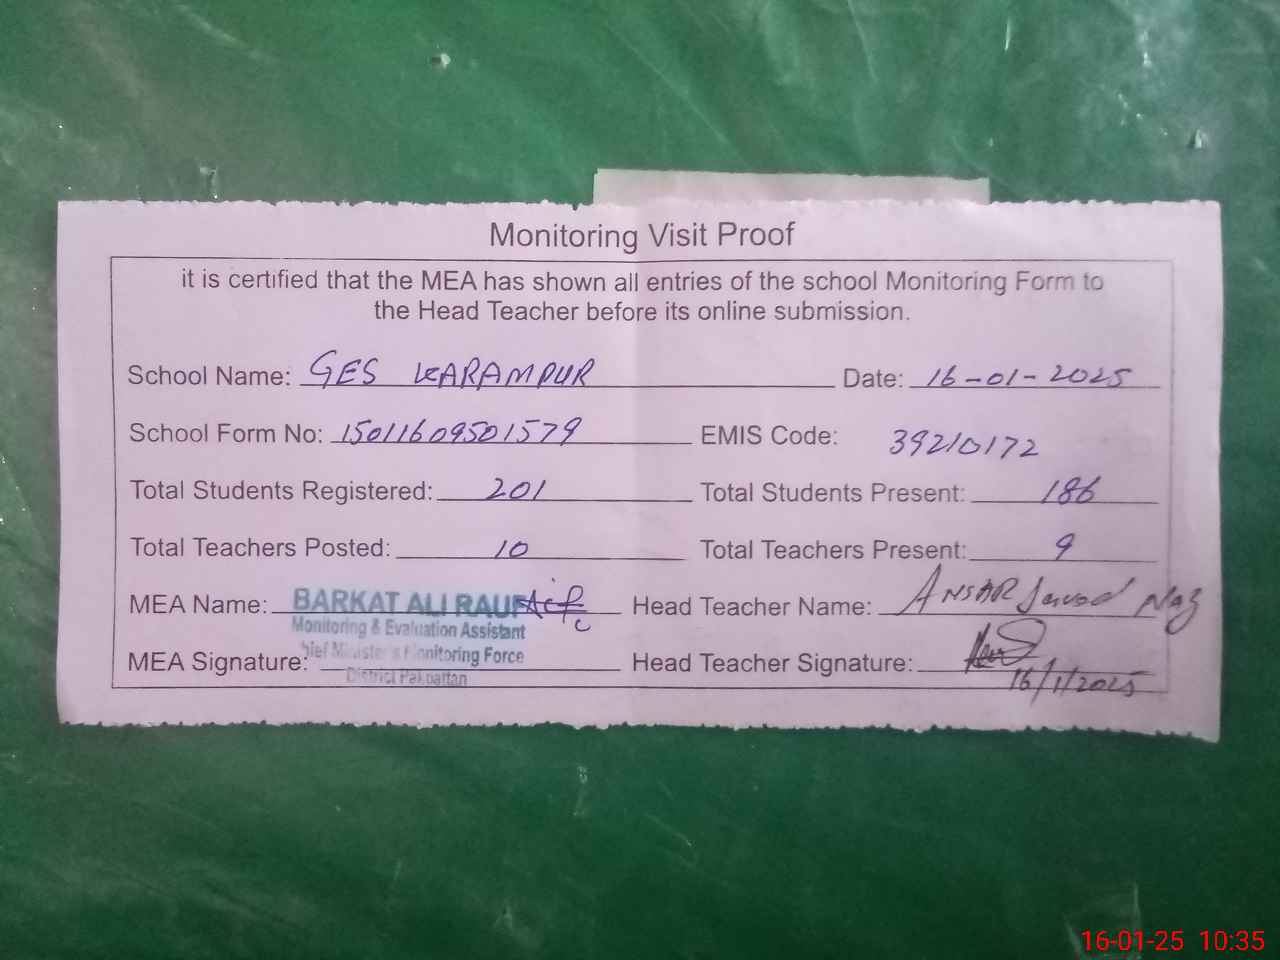 Monitoring Visit Proof
it is certified that the MEA has shown all entries of the school Monitoring Form to
the Head Teacher before its online submission.
School Name: GES KARAMPUR Date: 16-01-2025
School Form No: 15011609501579 EMIS Code: 39210172
Total Students Registered: 201 Total Students Present: 186
Total Teachers Posted: 10 Total Teachers Present: 9
MEA Name: BARKAT ALI RAUF Head Teacher Name: ANSAR Javed Naz
Monitoring & Evaluation Assistant
Chief Minister's Monitoring Force
MEA Signature: Head Teacher Signature:
District Pakpattan 16/1/2025
16-01-25 10:35